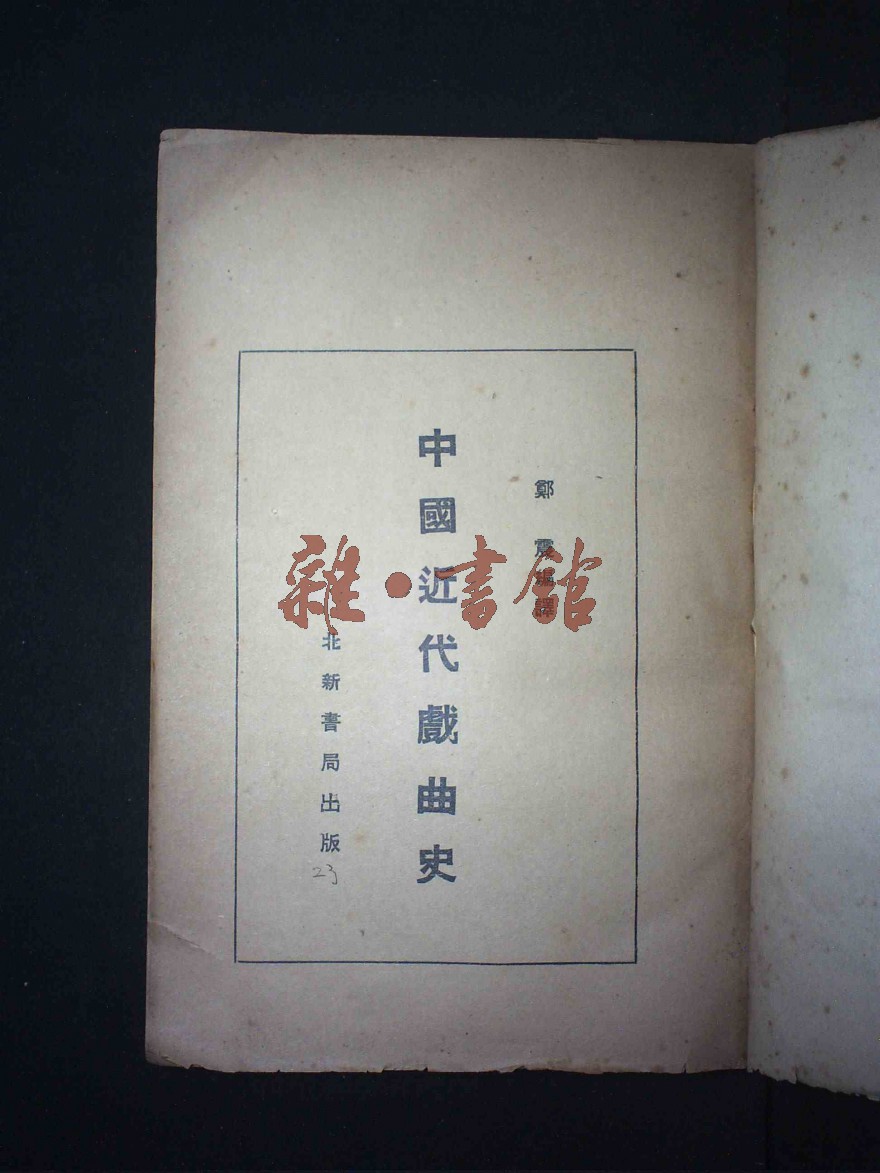 鄭震編譯
中國近代戲曲史
北新書局出版
23
雜·書館